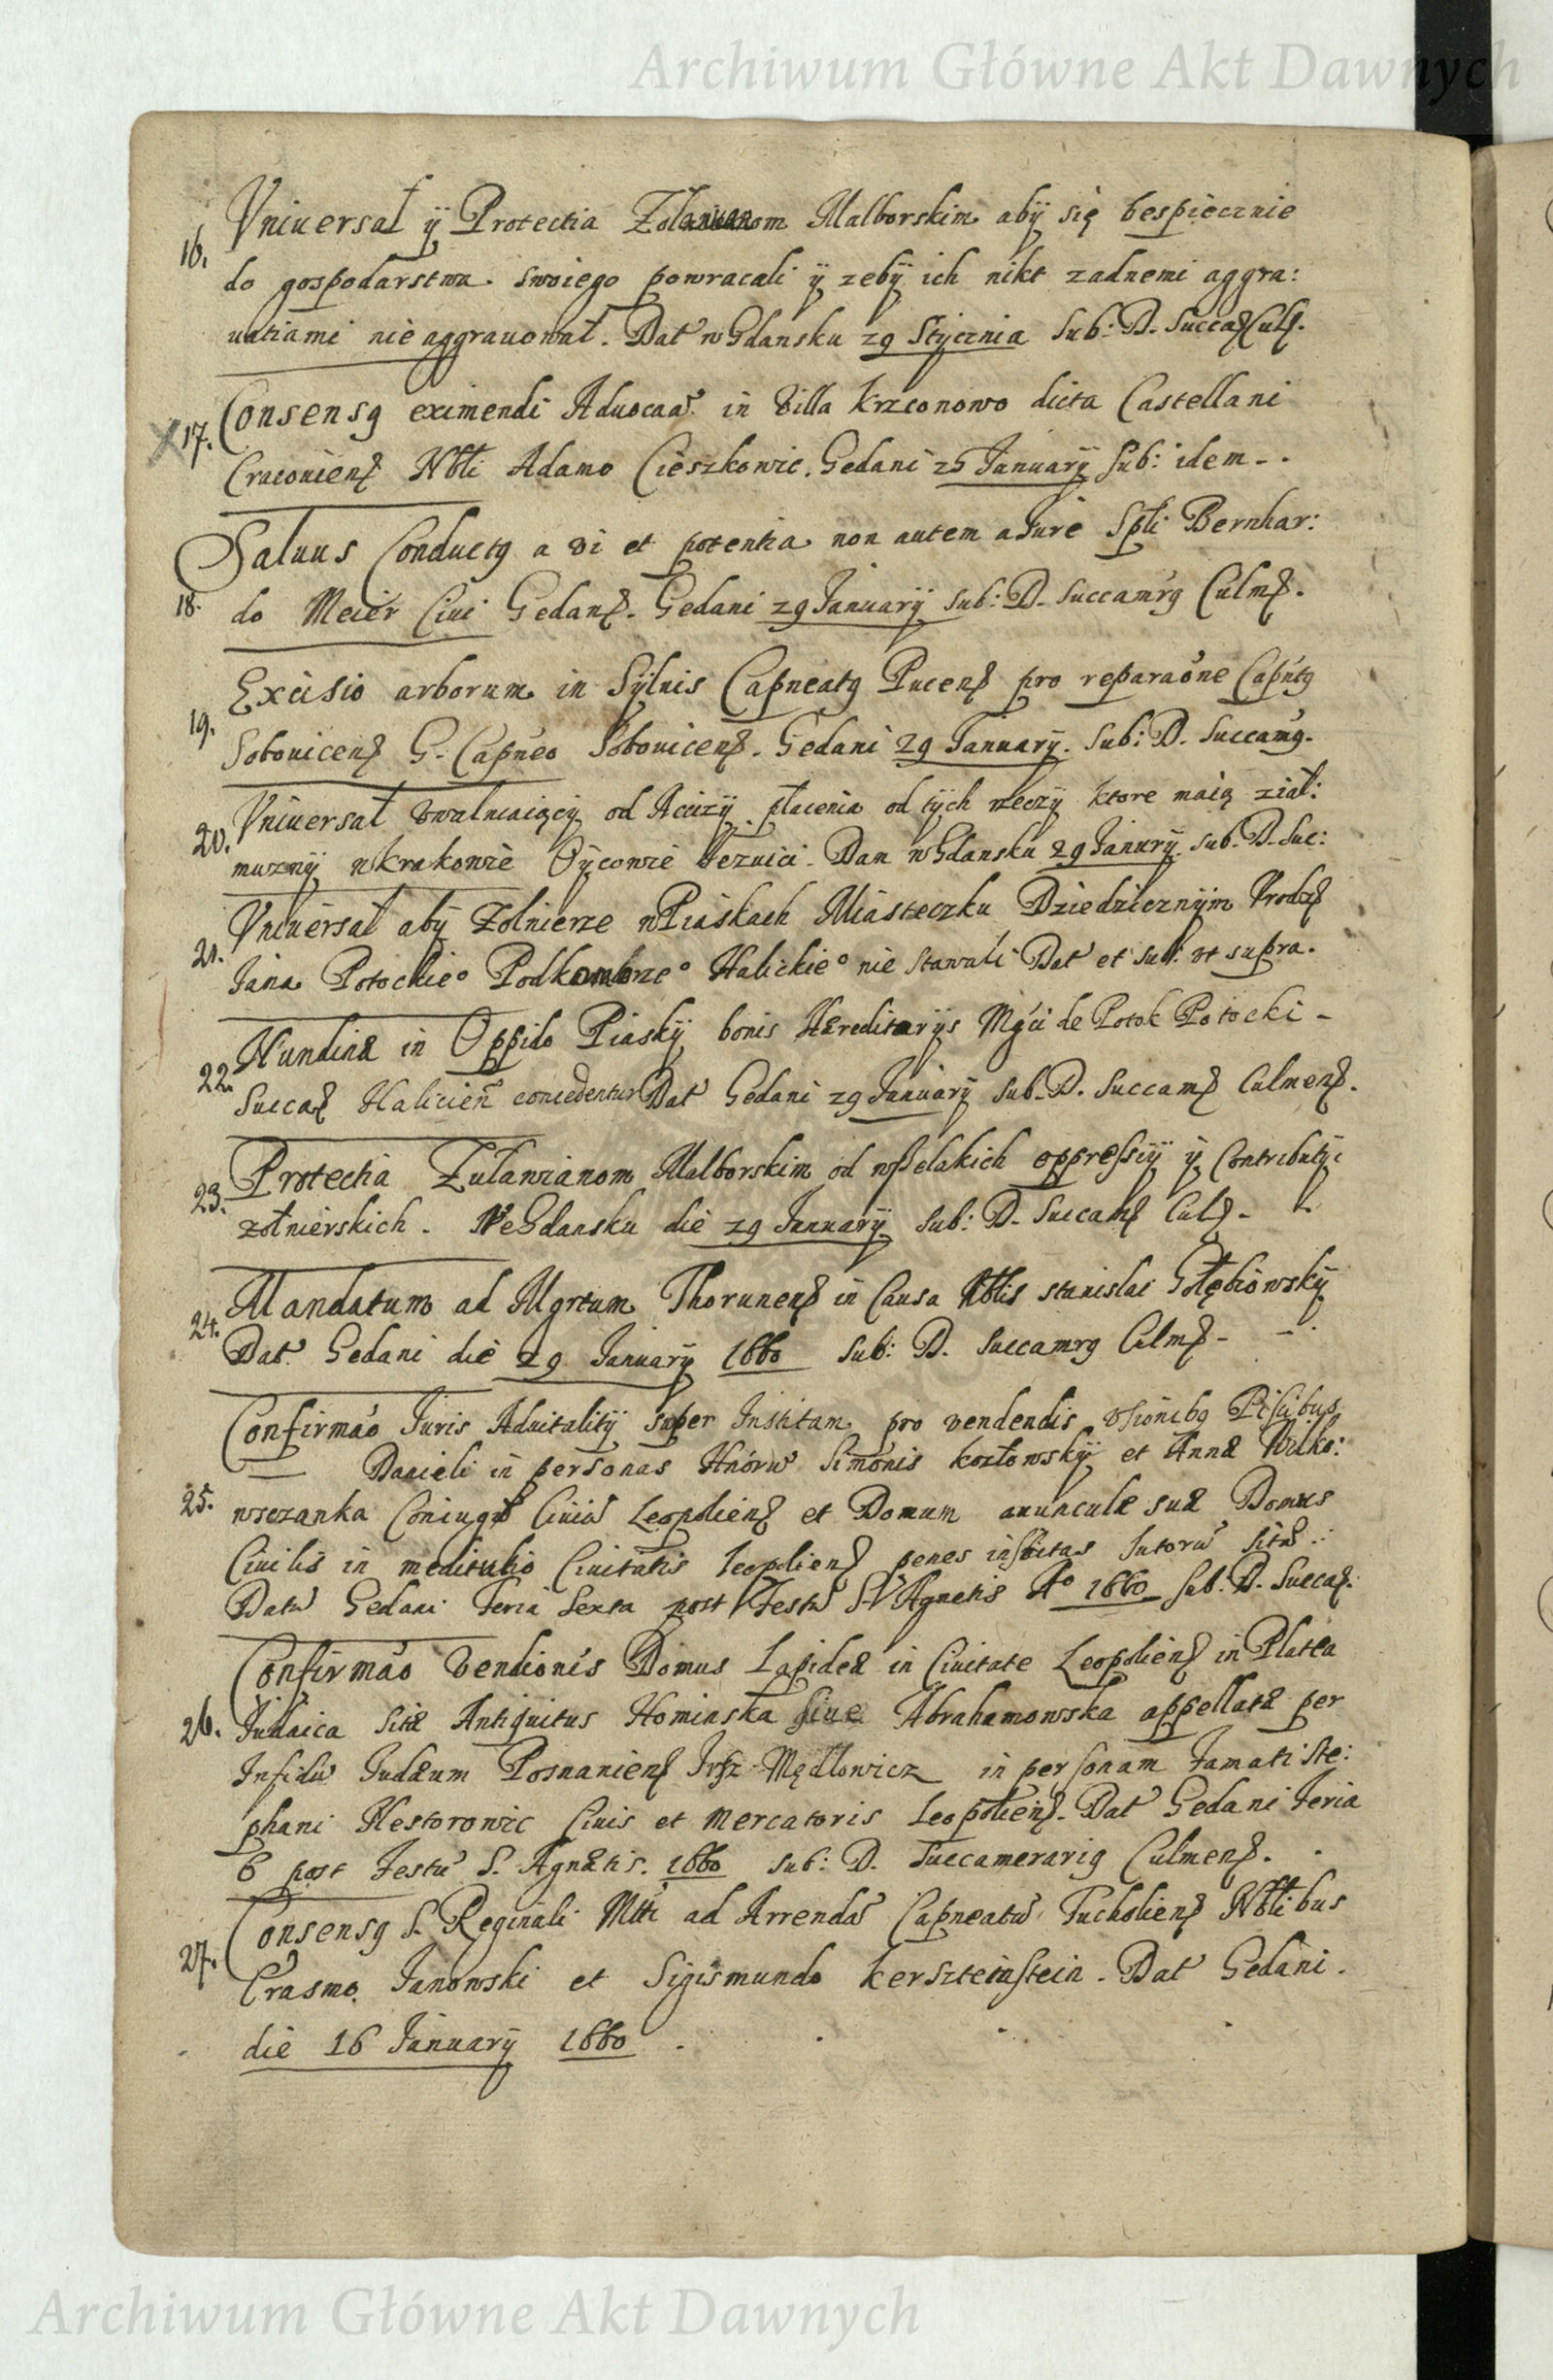 Archiwum Główne Akt Dawnych
16. Vniuersał ÿ Protectia Żoławianom Malborskim abÿ się bespiecznie
do gospodarstwa swoiego powracali ÿ zebÿ ich nikt zadnemi aggra:
uatiami nie aggrauował. Dat w Gdansku 29 Stÿcznia Sub: D. Succaȝ Culȝ.
17. Consensq eximendi Aduocaa͠t in Villa Krzconowo dicta Castellani
Cracouienȝ Nbli Adamo Cieszkowic. Gedani 25 Januarÿ Sub: idem - .
Saluus Conductq a vi et potentia non autem a Jure Spli Bernhar:
18. do Meier Ciui Gedanȝ. Gedani 29 Januarÿ Sub: D. Succamrq Culmȝ.
19. Excisio arborum in Sÿluis Capneatq Pucenȝ pro reparao͠ne Capn͠tq
Sobouicenȝ G. Capn͠eo Sobouicenȝ. Gedani 29 Januarÿ. Sub: D. Succam͠q.
20. Vniuersał vwalniaiącÿ od Accizÿ płacenia od tÿch rzeczÿ ktore maią ział:
muznÿ w Krakowie Oÿcowie Jezuici. Dan w Gdansku 29 Janurÿ. Sub. D. Suc:
21. Vniuersał abÿ Zołnierze w Piaskach Miasteczku Dziedzicznÿm Vrodzȝ
Jana Potockieo Podkomorzeo Halickieo nie stawali Dat et sub: vt supra.
22. Nundinæ in Oppido Piaskÿ bonis Hæreditarÿs Mgci de Potok Potocki -
Succaȝ Halicien͠ conceduntur Dat Gedani 29 Januarÿ Sub. D. Succamȝ Culmenȝ.
23. Protectia Zuławianom Malborskim od wszelakich oppressiÿ ÿ Contributÿi
zołnierskich. We Gdansku die 29 Januarÿ. Sub: D. Succamȝ Culȝ -
24. Mandatum ad Mgrtum Thorunenȝ in Causa Nblis Stanislai Gołębiowskÿ
Dat. Gedani die 29 Januarÿ 1660 Sub: D. Succamrq Culmȝ -
Confirmao͠ Juris Aduitalitÿ super Institam pro vendendis Piscibus
Danieli in personas Hnoru͠ Simonis Kozłowskÿ et Annæ Wilko:
25. wsczanka Coniugu͠ Ciuiu͠ Leopolienȝ et Domum auunculæ suæ Domus
Ciuilis in meditulio Ciuitatis Leopolienȝ penes institas Sutoru͠ sitæ .
Datu͠ Gedani Feria Sexta post Festu͠ S. Agnetis Ao 1660 Sub. D. Succaȝ.
Confirmao͠ Vendionis Domus Lapideæ in Ciuitate Leopolienȝ in Platea
26. Judaica sitæ Antiquitus Homiaska siue Abrahamowska appellatæ per
Infidu͠ Judæum Posnanienȝ Irsz Mędlowicz in personam Famati Ste:
phani Nestorowic Ciuis et Mercatoris Leopolienȝ. Dat Gedani Feria
6 post Festu͠ S. Agnætis. 1660 Sub: D. Succamerariq Culmenȝ.
27. Consensq S. Reginali Mtti ad Arrenda͠ Capneatu͠ Tucholienȝ Nblibus
Erasmo Janowski et Sigismundo Kerszteinstein. Dat Gedani.
die 16 Januarÿ 1660.
Archiwum Główne Akt Dawnych